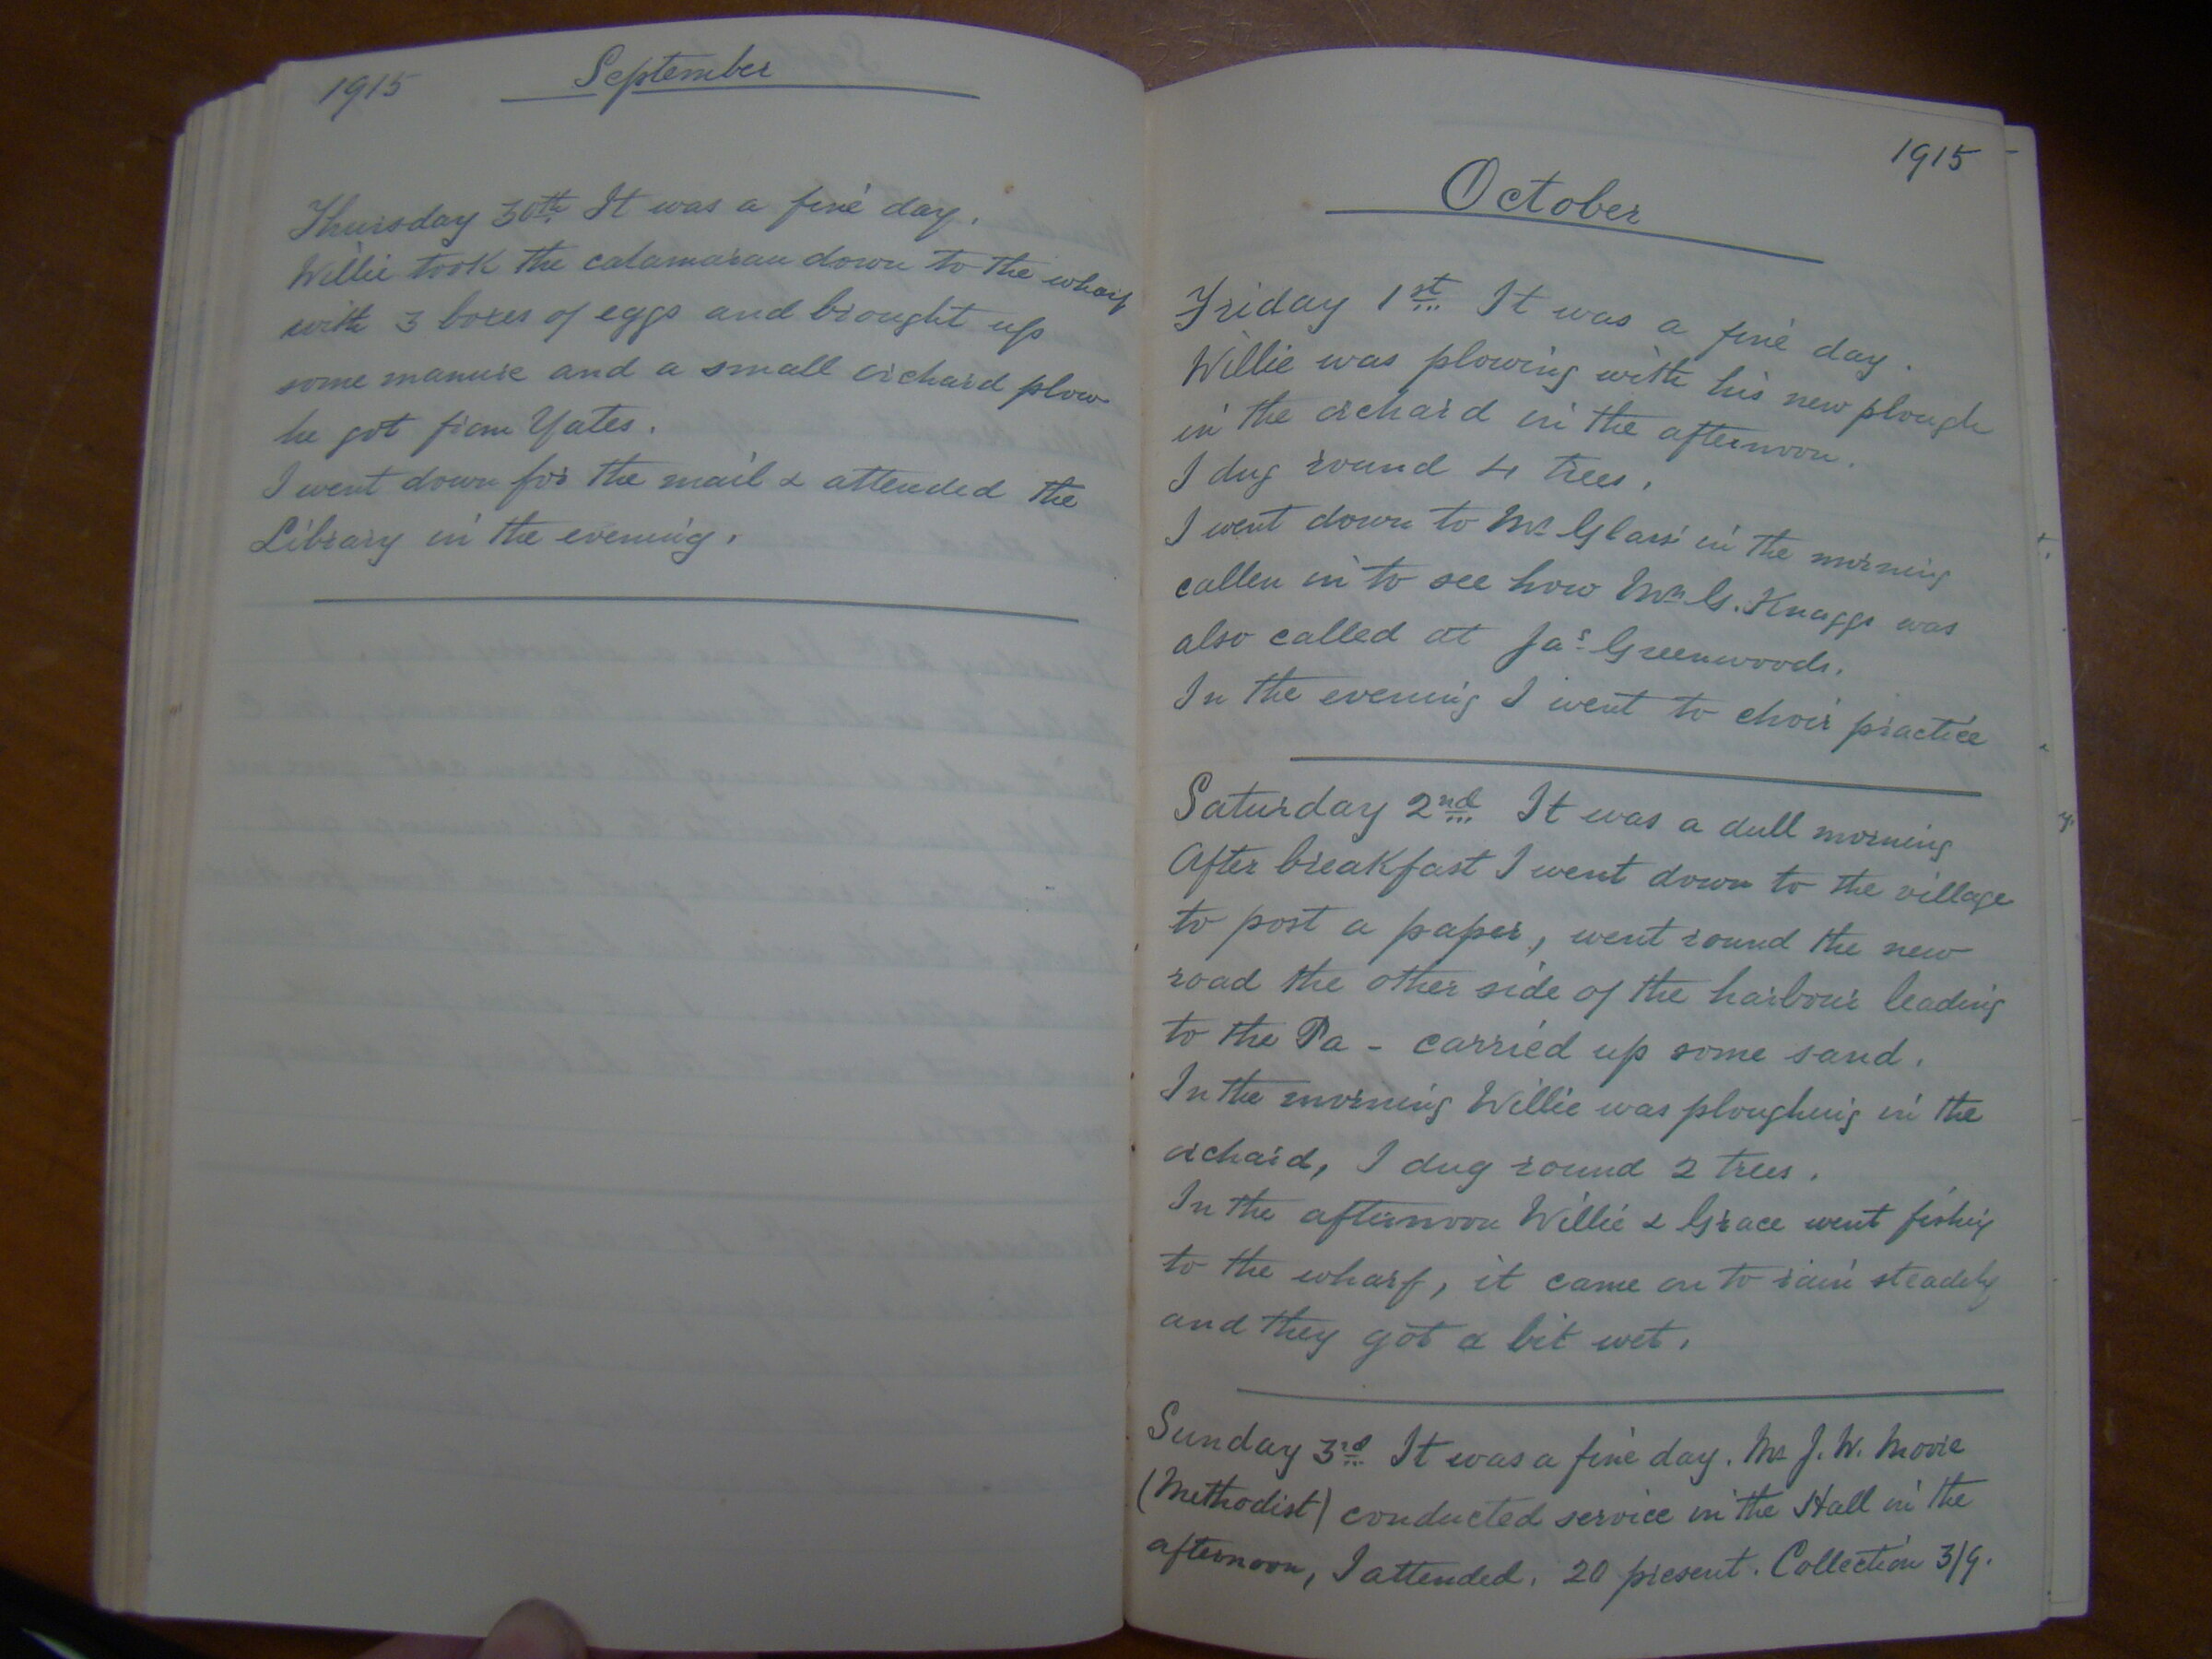 1915 September
Thursday 30th It was a fine day.
Willie took the catamaran down to the wharf
with 3 boxes of eggs and brought up
some manure and a small orchard plow
he got from Yates.
I went down for the mail & attended the
Library in the evening.
1915
October
Friday 1st It was a fine day.
Willie was plowing with his new plough
in the orchard in the afternoon.
I dug round 4 trees.
I went down to Mr Glass' in the morning
callen in to see how Mrs G. Knaggs was
also called at Jas Greenwoods.
In the evening I went to choir practice
Saturday 2nd It was a dull morning
After breakfast I went down to the village
to post a paper, went round the new
road the other side of the harbour leading
to the Pa - carried up some sand.
In the morning Willie was ploughing in the
orchard, I dug round 2 trees.
In the afternoon Willie & Grace went fishing
to the wharf, it came on to rain steadily
and they got a bit wet.
Sunday 3rd It was a fine day. Mr J. W. Moore
(Methodist) conducted service in the Hall in the
afternoon, I attended. 20 present. Collection 3/9.